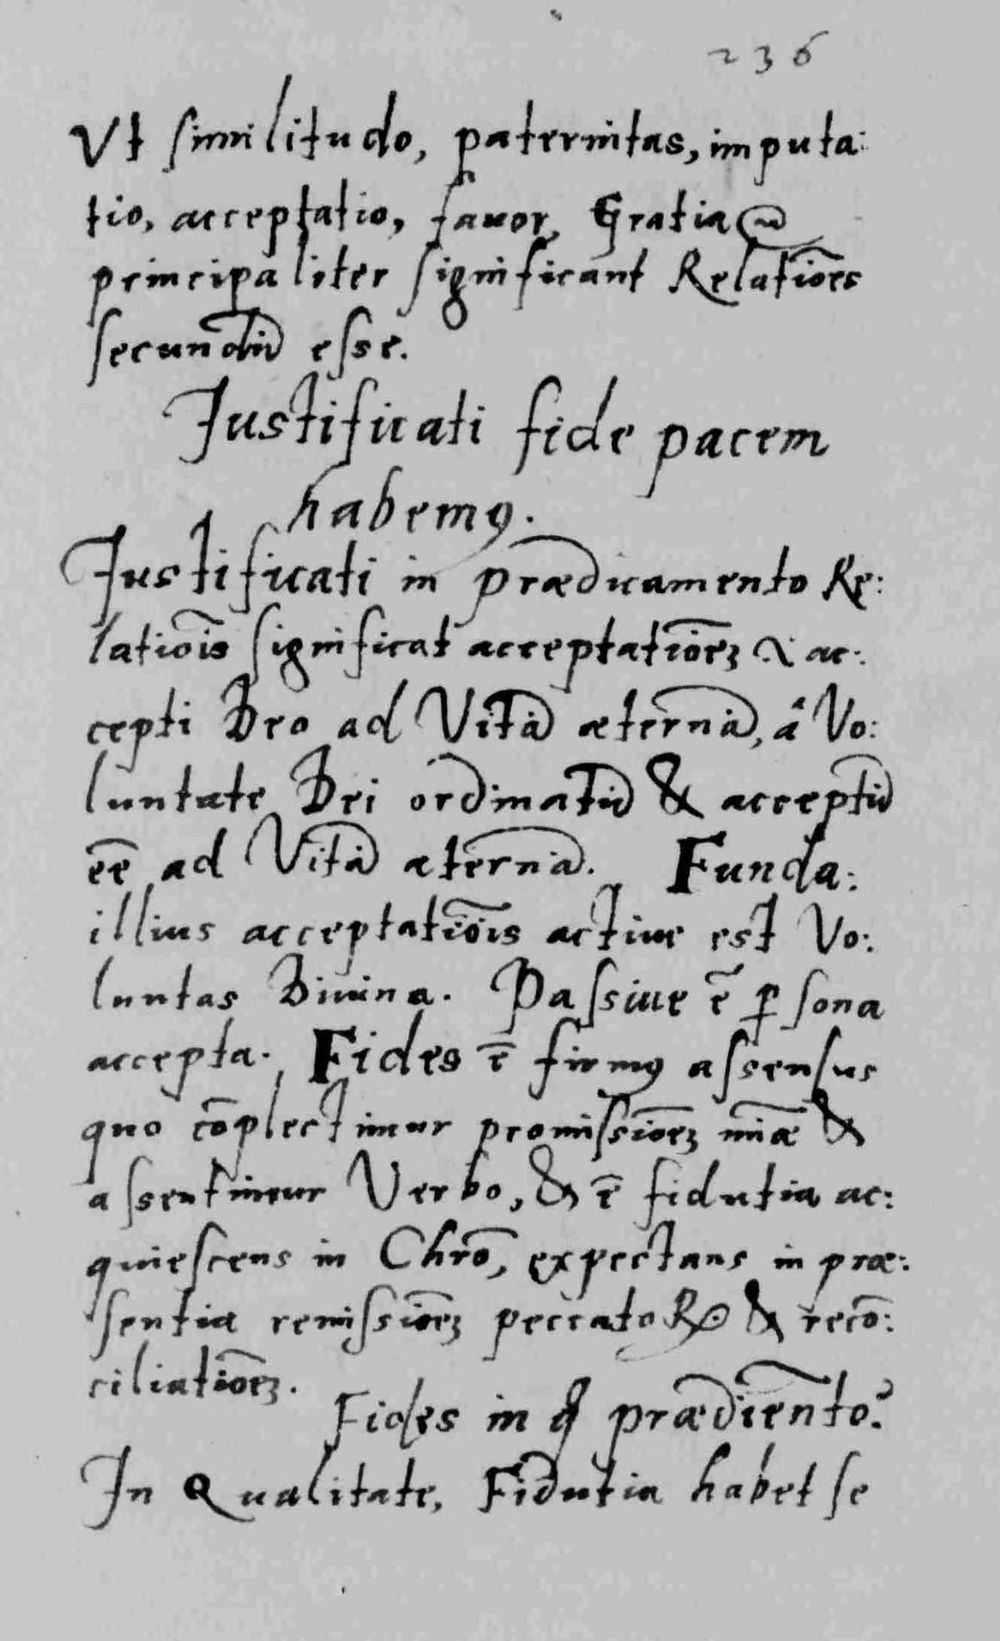 236
Vt similitudo, paternitas, imputa:
tio, acceptatio, fauor, Gratia
principaliter significant Relatiões
secundũ esse.
Justificati fide pacem
habemꝰ.
Justificati in prædicamento Re:
latiõis significat acceptatiõeꝫ .i. ac:
cepti Deo ad Vitã æternã, â Vo:
luntate Dei ordinatũ & acceptũ
eẽ ad Vitã æternã. Funda:
illius acceptatiõis actiue est Vo:
luntas Diuina. Passiue ẽ ꝑsona
accepta. Fides ẽ firmꝰ assensus
quo cõplectimur promissiõeꝫ miæ̃ &
assentimur Verbo, & ẽ fidutia ac:
quiescens in Chrõ, expectans in præ:
sentia remissiõeꝫ peccatoꝝ & recõ:
ciliatiõeꝫ.
Fides in ꝗ prædiẽnto?
In Qualitate, Fidutia habet se